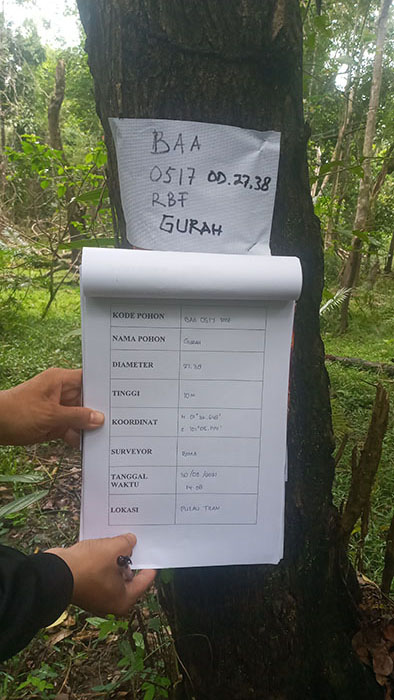 BAA
0517 OD.27.38
RBF
GURAH
KODE POHON BAA 0517 RBF
NAMA POHON GURAH
DIAMETER 27.38
TINGGI 10 M
KOORDINAT
SURVEYOR BIMA
TANGGAL
WAKTU
LOKASI